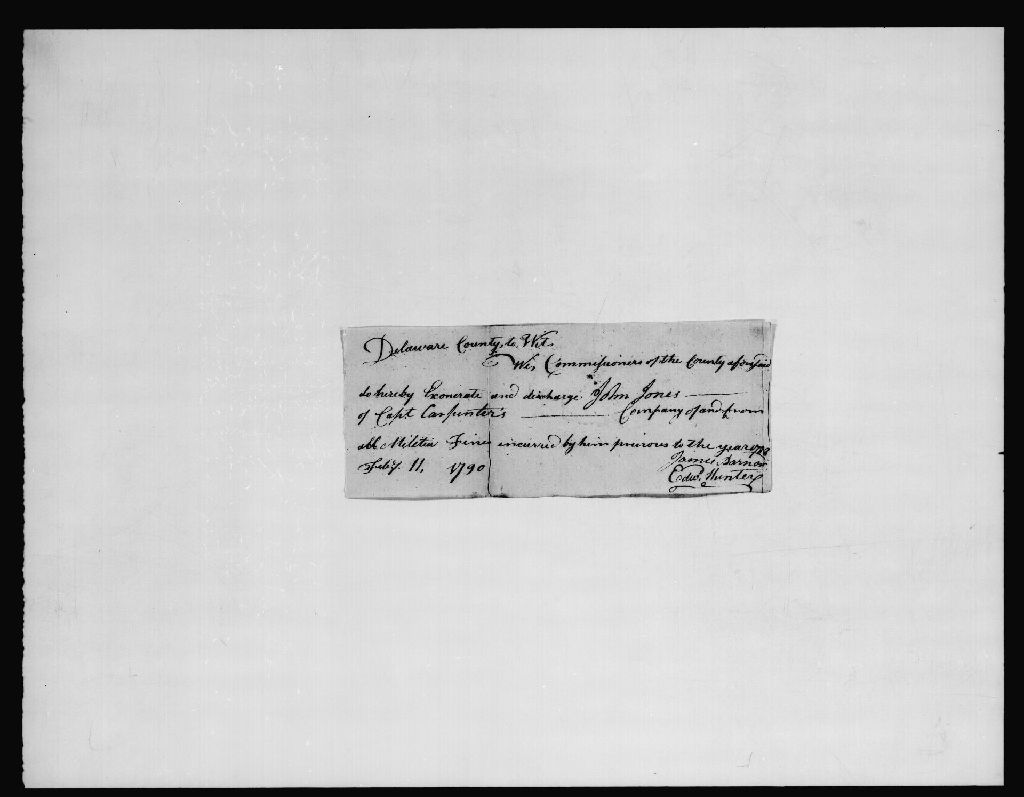 Delaware County, to Wit.
We, Commissioners of the County aforesaid
do hereby Exonerate and discharge John Jones
of Capt Carpunter's Company of and from
all Miletia Fine incurred by him previous to the year
Feby. 11, 1790
James Barnar
Edwd. Hunter